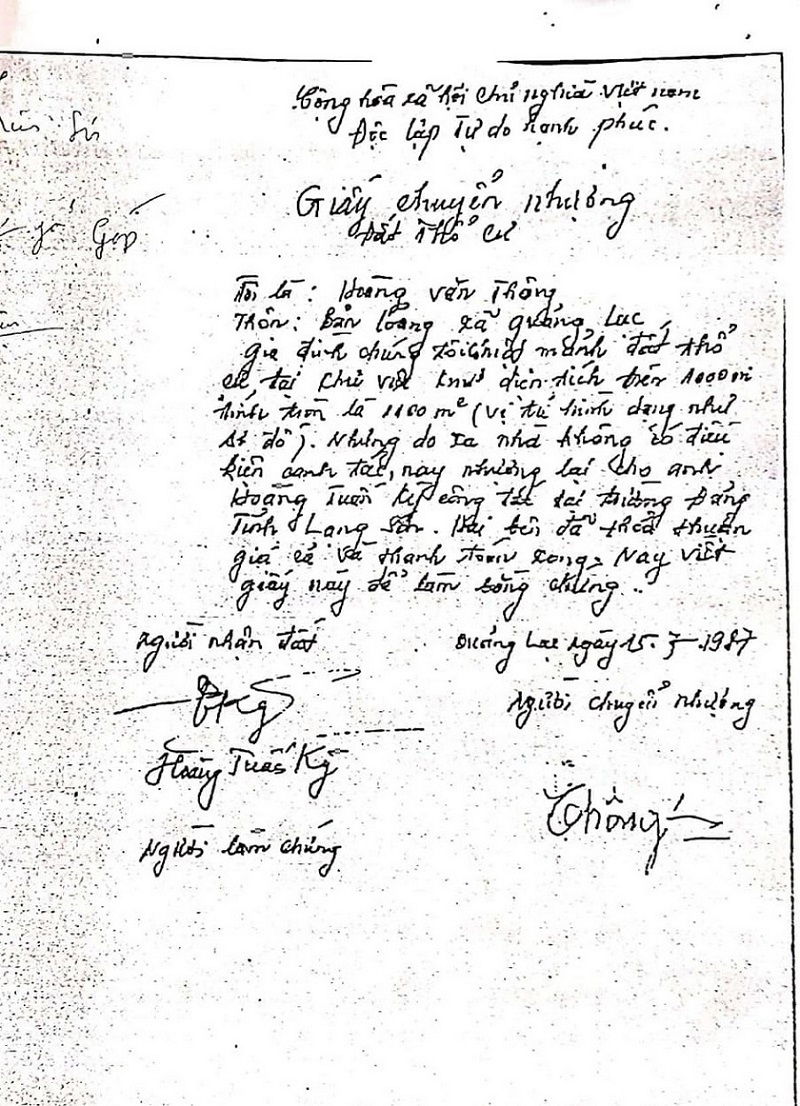 Cộng hòa xã hội chủ nghĩa Việt nam
Độc lập Tự do hạnh phúc.
Giấy chuyển nhượng
Đất Thổ cư
Tôi là: Hoàng Văn Thông
Thôn: Bản loỏng xã Quảng Lạc
gia đình chúng tôi có mảnh đất thổ
cư, tại khu diện tích trên 1000m
tính tròn là 1100 m² (vị trí hình dạng như
sơ đồ). Nhưng do xa nhà không có điều
kiện canh tác, nay nhượng lại cho anh
Hoàng Tuấn Kỳ công tác tại trường Đảng
Tỉnh Lạng Sơn. Hai bên đã thoả thuận
giá cả và thanh toán xong, Nay viết
giấy này để làm bằng chứng..
Người nhận đất
Quảng Lạc ngày 15. 7 .1987
Người chuyển nhượng
Hoàng Tuấn Kỳ
Thông
Người làm chứng